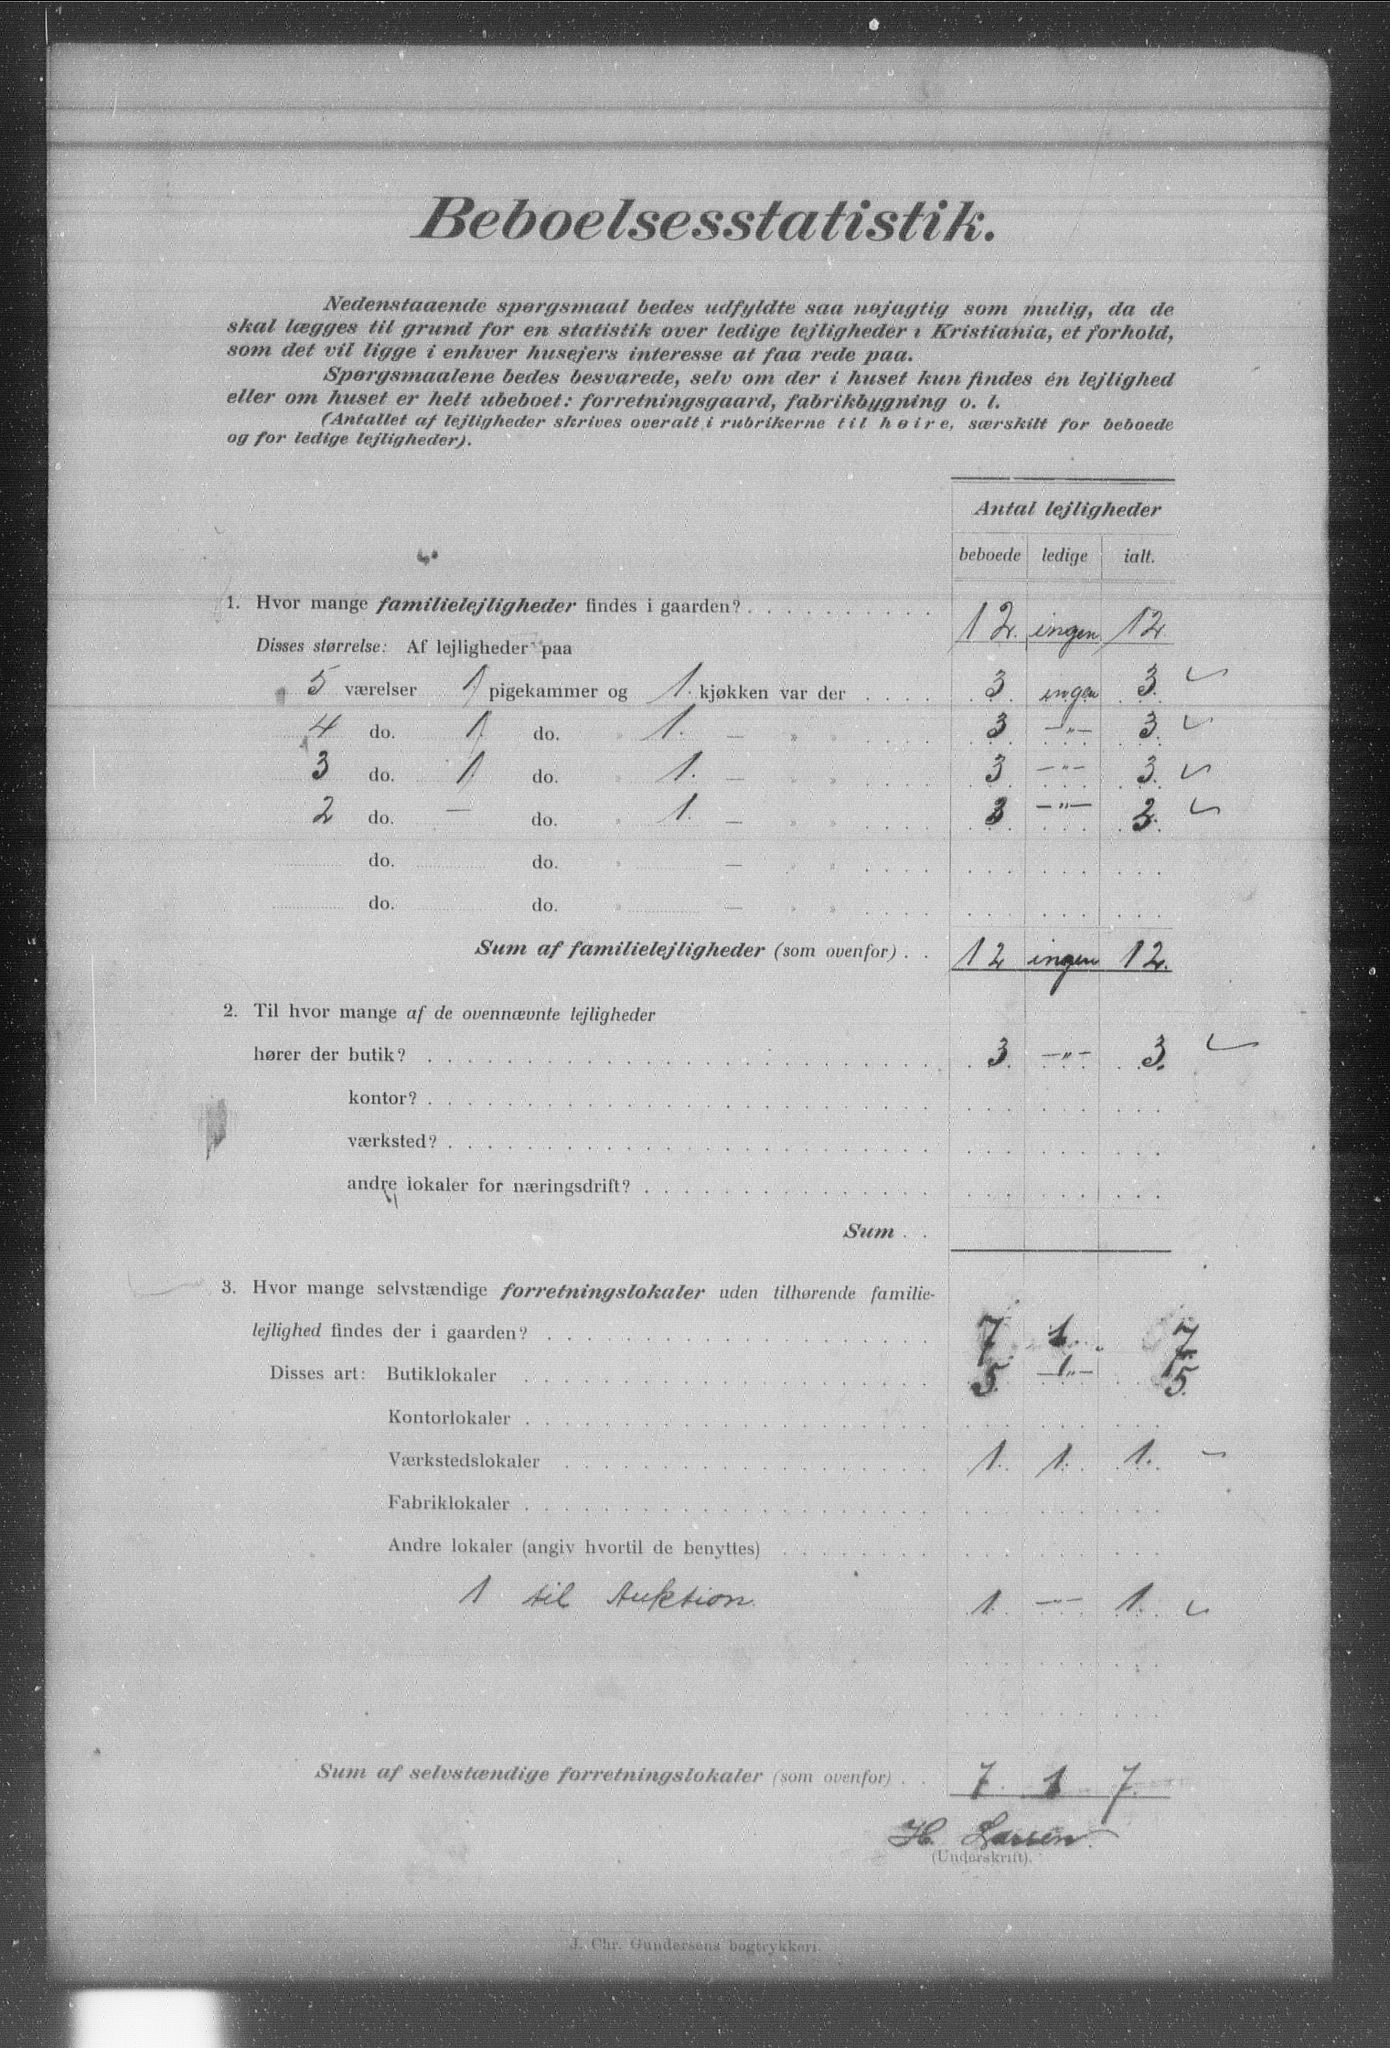 Beboelsesstatistik.
Nedenstaaende spørgsmaal bedes udfyldte saa nøjagtig som mulig, da de
skal lægges til grund for en statistik over ledige lejligheder i Kristiania, et forhold,
som det vil ligge i enhver husejers interesse at faa rede paa.
Spørgsmaalene bedes besvarede, selv om der i huset kun findes én lejlighed
eller om huset er helt ubeboet: forretningsgaard, fabrikbygning o. l.
(Antallet af lejligheder skrives overalt i rubrikerne til høire, særskilt for beboede
og for ledige lejligheder).
Antal lejligheder
beboede ledige ialt.
1. Hvor mange familielejligheder findes i gaarden? 12. ingen 12.
Disses størrelse: Af lejligheder paa
5 værelser 1 pigekammer og 1. kjøkken var der 3. ingen 3.
4 do. 1 do. „ 1. — „ „ 3 —„— 3.
3 do. 1 do. „ 1. — „ „ 3 —„— 3.
2 do. — do. „ 1. — „ „ 3 —„— 3.
do. do. „ — „ „
do. do. „ — „ „
Sum af familielejligheder (som ovenfor) 12 ingen 12.
2. Til hvor mange af de ovennævnte lejligheder
hører der butik? 3. —„— 3.
kontor?
værksted?
andre lokaler for næringsdrift?
Sum
3. Hvor mange selvstændige forretningslokaler uden tilhørende familie-
lejlighed findes der i gaarden? 7. 1. 7.
Disses art: Butiklokaler 5. —„— 5.
Kontorlokaler
Værkstedslokaler 1. 1. 1.
Fabriklokaler
Andre lokaler (angiv hvortil de benyttes)
1 til Auktion. 1. —„— 1.
Sum af selvstændige forretningslokaler (som ovenfor) 7. 1 7.
H. Larsen.
(Underskrift).
J. Chr. Gundersens bogtrykkeri.